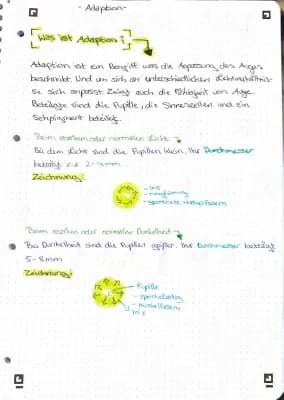 - Adaption-
Was ist Adaption?
Adaption ist ein Begriff was die Anpassung des Auges
beschreibt. Und um sich an unterschiedlichen Lichtverhältnis-
se sich anpasst. Zeigt auch die Fähigkeit von Auge.
Beteiligte sind die Pupille, die Sinneszellen und ein
Sehpigment beteiligt.
Beim starkem oder normalen Licht:
Bei dem Licht sind die Pupillen klein. Ihr Durchmesser
beträgt ca 2-4mm.
Zeichnung:
- Iris
- ringförmig
- gespannte Muskelfasern
Beim starken oder normalen Dunkelheit
Bei Dunkelheit sind die Pupillen größer. Ihr Durchmesser beträgt
5-8mm
Zeichnung:
- Pupille
- Muskelfasern
Iris